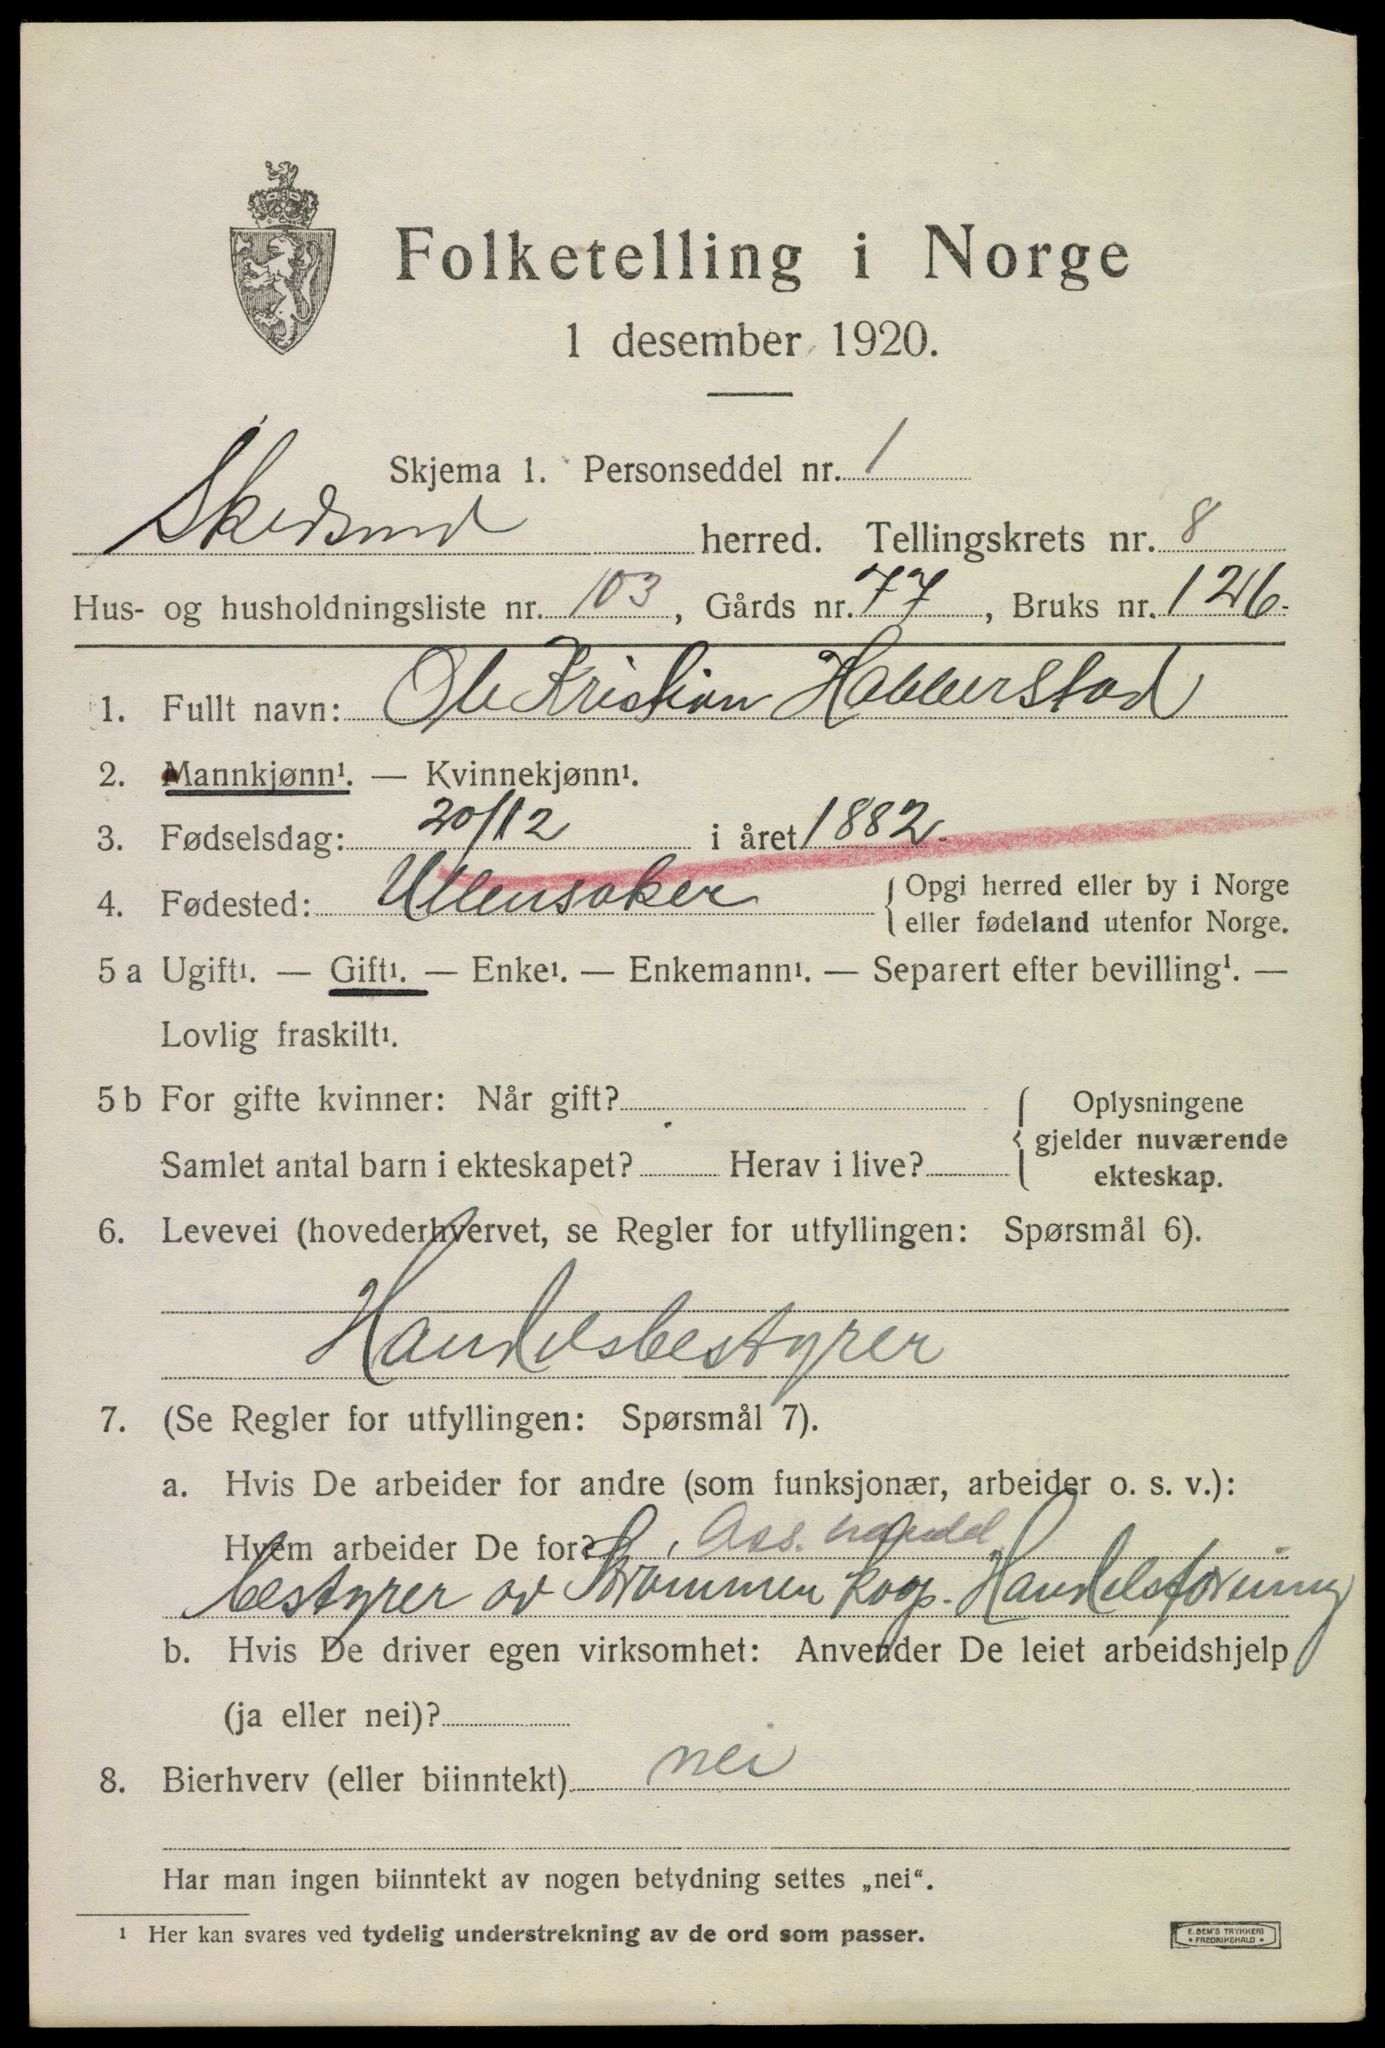 Folketelling i Norge
1 desember 1920.
Skjema 1. Personseddel nr. 1
Skedsmo herred. Tellingskrets nr. 8
Hus- og husholdningsliste nr. 103, Gårds nr. 77, Bruks nr. 126
1. Fullt navn: Ole Kristian Habberstad
2. Mannkjønn¹. — Kvinnekjønn¹.
3. Fødselsdag: 20/12 i året 1882
4. Fødested: Ullensaker { Opgi herred eller by i Norge
eller fødeland utenfor Norge.
5 a Ugift¹. — Gift¹. — Enke¹. — Enkemann¹. — Separert efter bevilling¹. —
Lovlig fraskilt¹.
5 b For gifte kvinner: Når gift? { Oplysningene
gjelder nuværende
Samlet antal barn i ekteskapet? Herav i live? ekteskap.
6. Levevei (hovederhvervet, se Regler for utfyllingen: Spørsmål 6).
Handelsbestyrer
7. (Se Regler for utfyllingen: Spørsmål 7).
a. Hvis De arbeider for andre (som funksjonær, arbeider o. s. v.):
Hvem arbeider De for? Ass. handel
bestyrer av Strømmen koop. Handelsforening
b. Hvis De driver egen virksomhet: Anvender De leiet arbeidshjelp
(ja eller nei)?
8. Bierhverv (eller biinntekt) nei
Har man ingen biinntekt av nogen betydning settes „nei“.
¹ Her kan svares ved tydelig understrekning av de ord som passer.
E. SEM'S TRYKKERI
• FREDRIKSHALD •